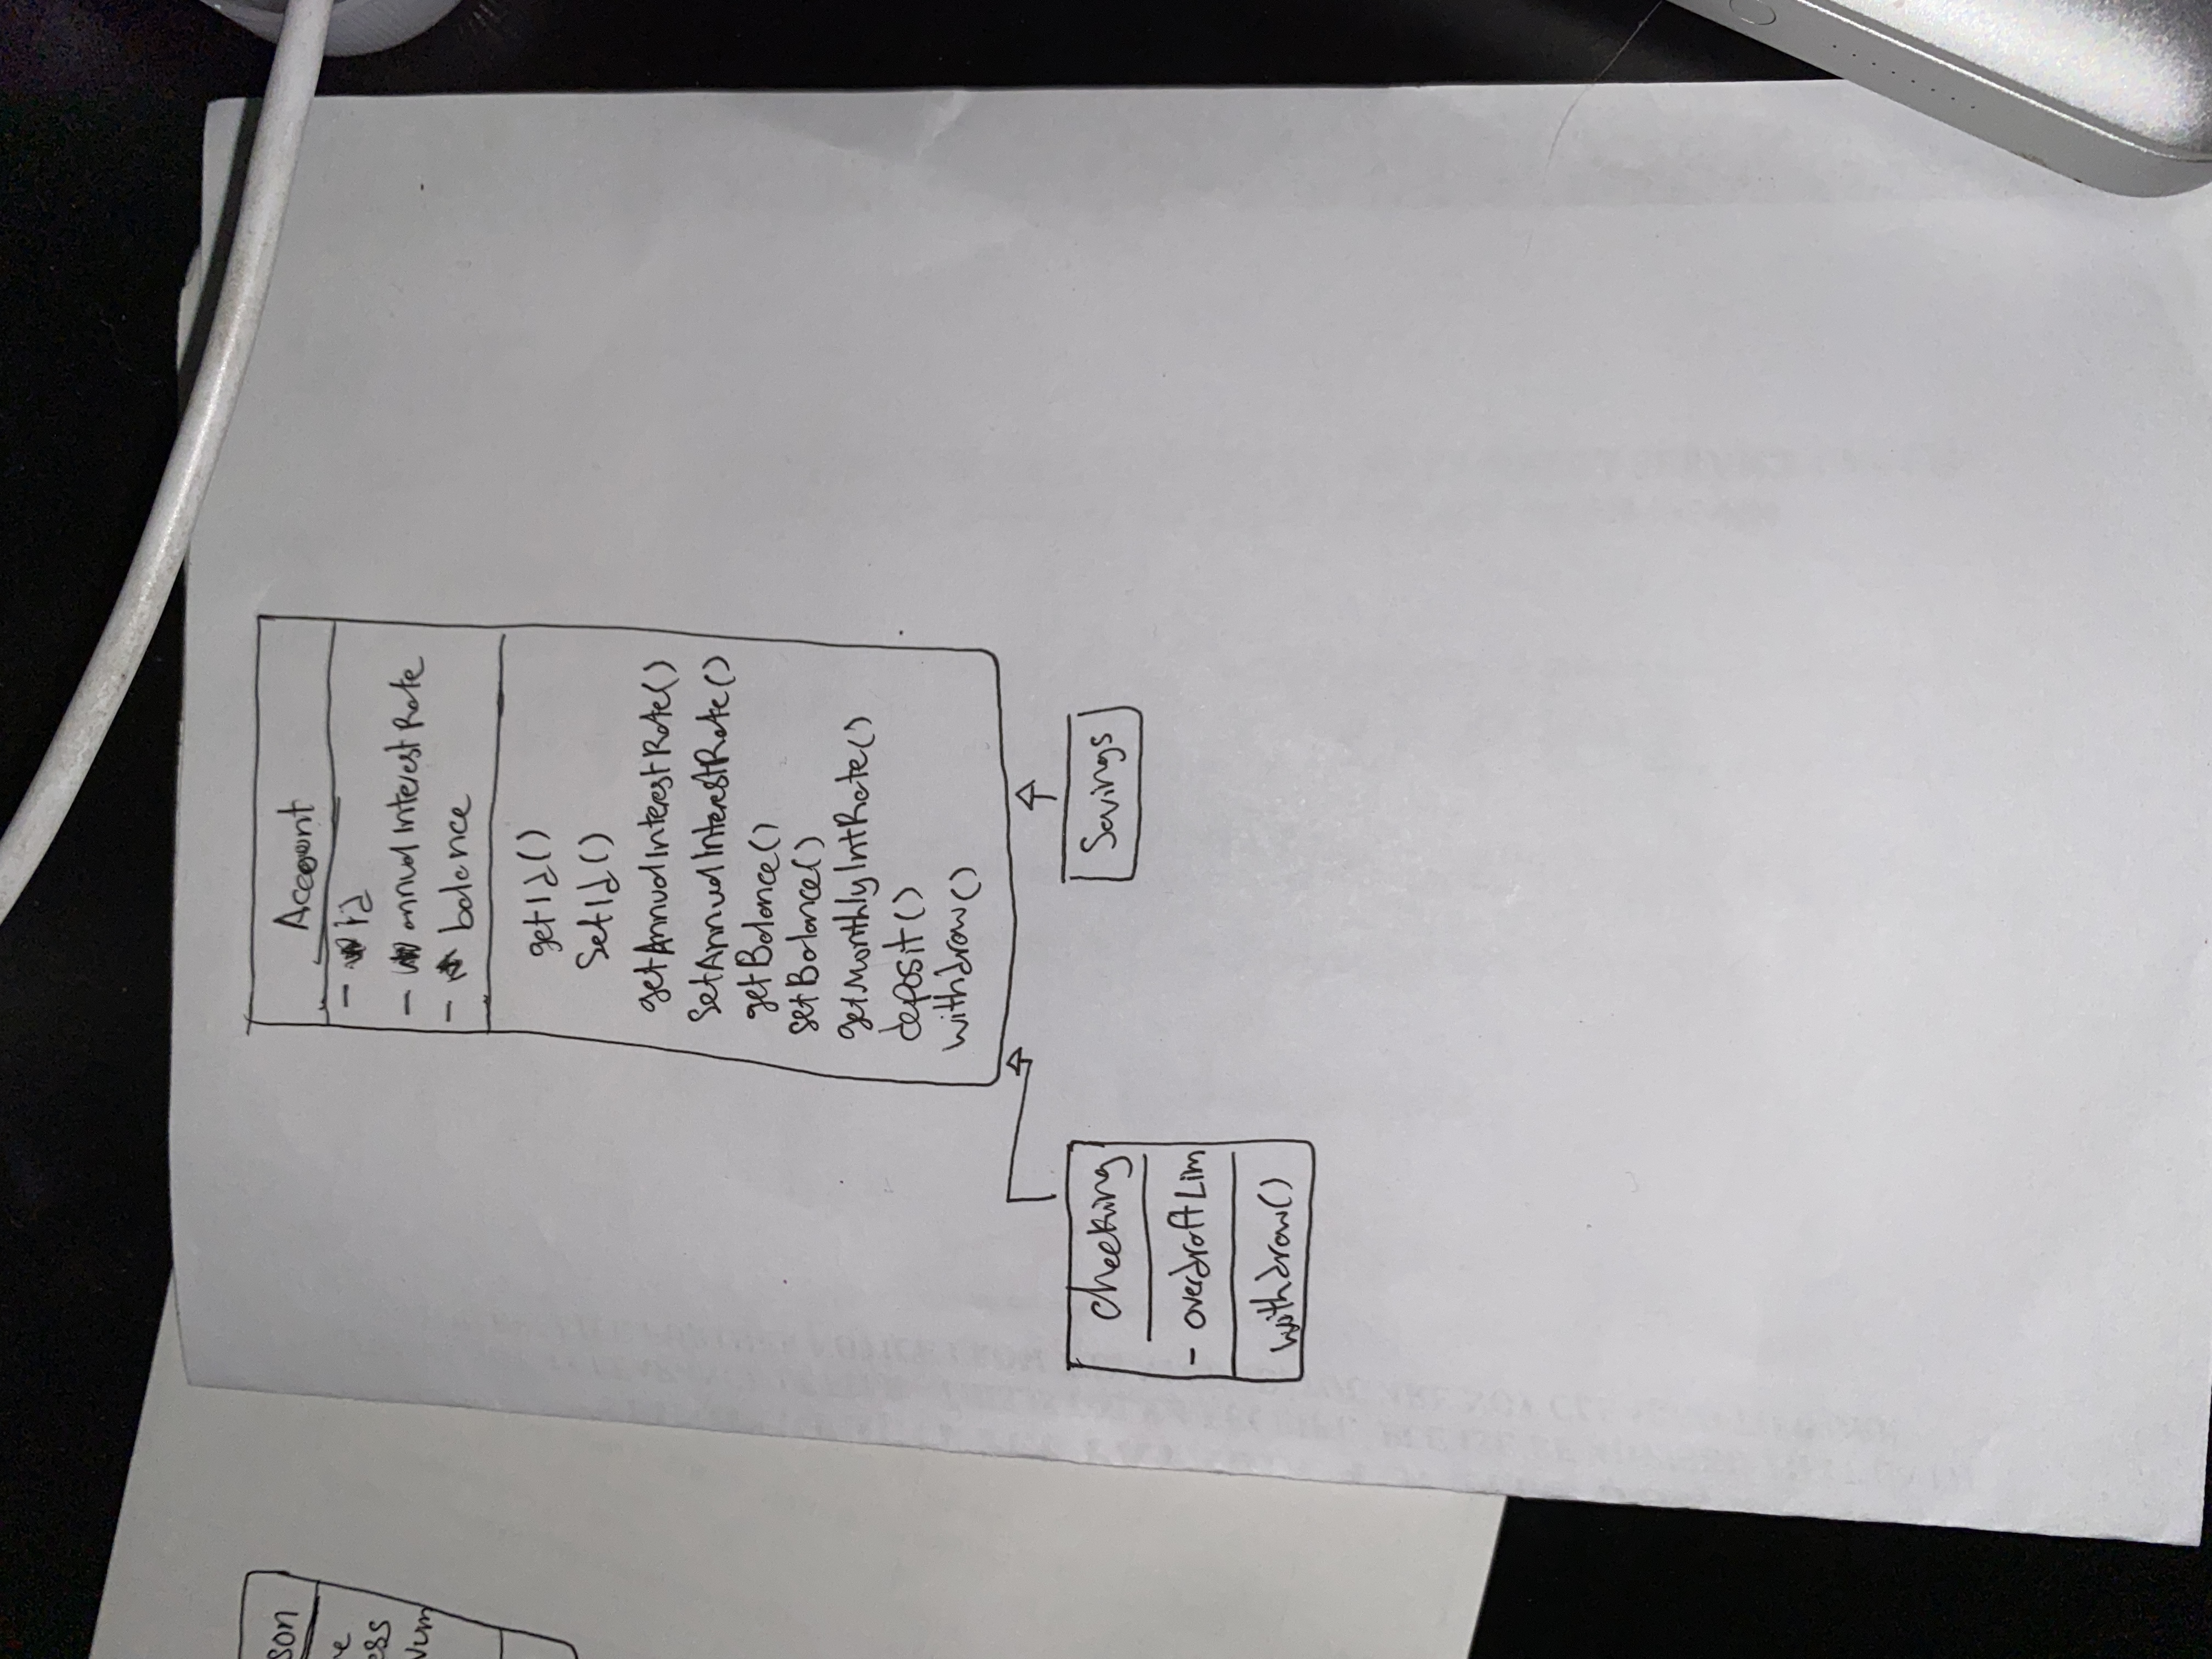 son
e
ess
Num
Account
- id
- annualInterestRate
- balance
getId()
SetId()
getAnnualInterestRate()
SetAnnualInterestRate()
getBalance()
setBalance()
getMonthlyIntRate()
deposit()
withdraw()
checking
- overdraftLim
withdraw()
Savings